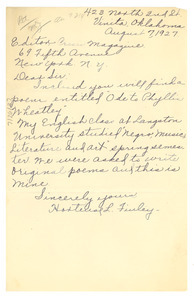 428 North 2nd St
Vinita, Oklahoma
August 7, 1927
Editor Magazine
69 Fifth Avenue
New York N. Y.
Dear Sir:
Inclosed you will find a
poem entitled Ode to Phyllis
Wheatley."
My English Class at Langston
University studied Negro music,
literature and art spring semes-
ter. We were asked to write
original poems and this is
mine.
Sincerely yours
Finley.